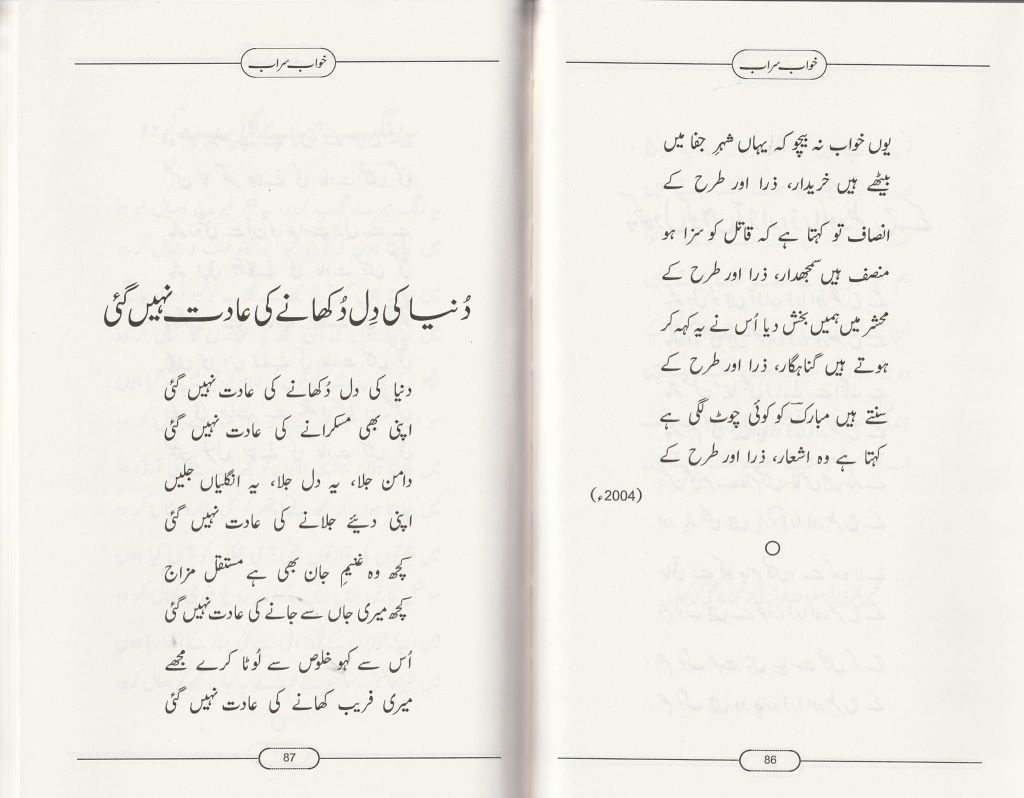 خواب سراب
یوں خواب نہ بیچو کہ یہاں شہرِ جفا میں
بیٹھے ہیں خریدار، ذرا اور طرح کے
انصاف تو کہتا ہے کہ قاتل کو سزا ہو
منصف ہیں سمجھدار، ذرا اور طرح کے
محشر میں ہمیں بخش دیا اُس نے یہ کہہ کر
ہوتے ہیں گناہگار، ذرا اور طرح کے
سنتے ہیں مبارکؔ کو کوئی چوٹ لگی ہے
کہتا ہے وہ اشعار، ذرا اور طرح کے
(2004ء)
86
خواب سراب
دُنیا کی دِل دُکھانے کی عادت نہیں گئی
دنیا کی دل دُکھانے کی عادت نہیں گئی
اپنی بھی مسکرانے کی عادت نہیں گئی
دامن جلا، یہ دل جلا، یہ انگلیاں جلیں
اپنی دیئے جلانے کی عادت نہیں گئی
کچھ وہ غنیمِ جان بھی ہے مستقل مزاج
کچھ میری جاں سے جانے کی عادت نہیں گئی
اُس سے کہو خلوص سے لُوٹا کرے مجھے
میری فریب کھانے کی عادت نہیں گئی
87